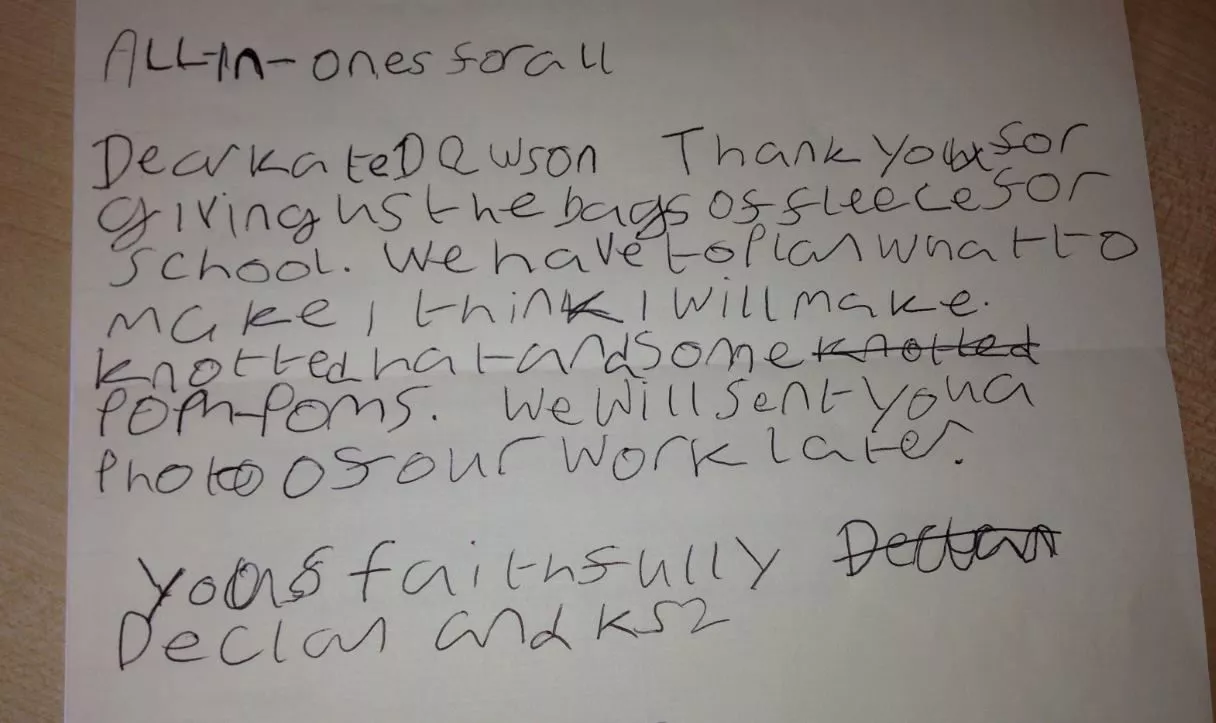 ALL-In-ones for all
Dear Kate Dawson Thank you for
giving us the bags of fleece for
school. We have to Plan what to
make I think I will make.
knotted hat and some knotted
Pom-Poms. We will sent you a
Photo of our work later.
yours faithfully Declan
Declan and KS2